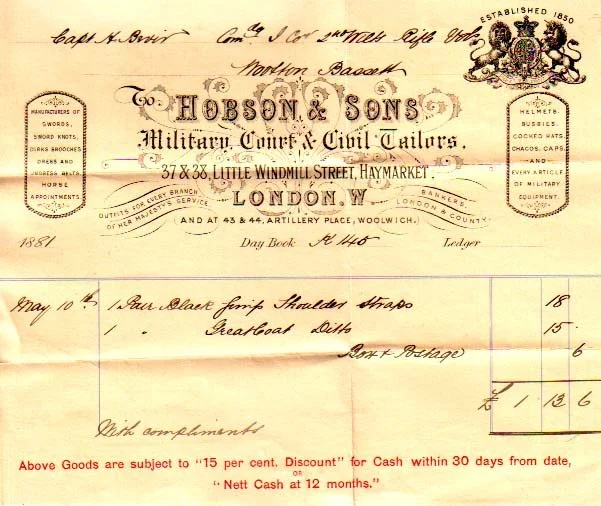 ESTABLISHED 1850
Capt A. Comdg I Co 2nd Wilts Rifle Vols
Wootton Bassett
To HOBSON & SONS
Military, Court & Civil Tailors.
37 & 38, LITTLE WINDMILL STREET, HAYMARKET.
LONDON. W.
(AND AT 43 & 44, ARTILLERY PLACE, WOOLWICH.)
MANUFACTURERS OF
SWORDS,
SWORD KNOTS,
DIRKS BROOCHES
DRESS AND
UNDRESS BELTS,
HORSE
APPOINTMENTS.
HELMETS,
BUSBIES,
COCKED HATS,
CHACOS, CAPS,
AND
EVERY ARTICLE
OF MILITARY
EQUIPMENT.
OUTFITS FOR EVERY BRANCH
OF HER MAJESTY'S SERVICE.
BANKERS,
LONDON & COUNTY.
1881 Day Book A 145 Ledger
May 10th 1 Pair Black Gimp Shoulder Straps 18
1 " GreatCoat Ditto 15
Box & Postage 6
£ 1 13 6
With compliments
Above Goods are subject to "15 per cent. Discount" for Cash within 30 days from date,
OR
"Nett Cash at 12 months."